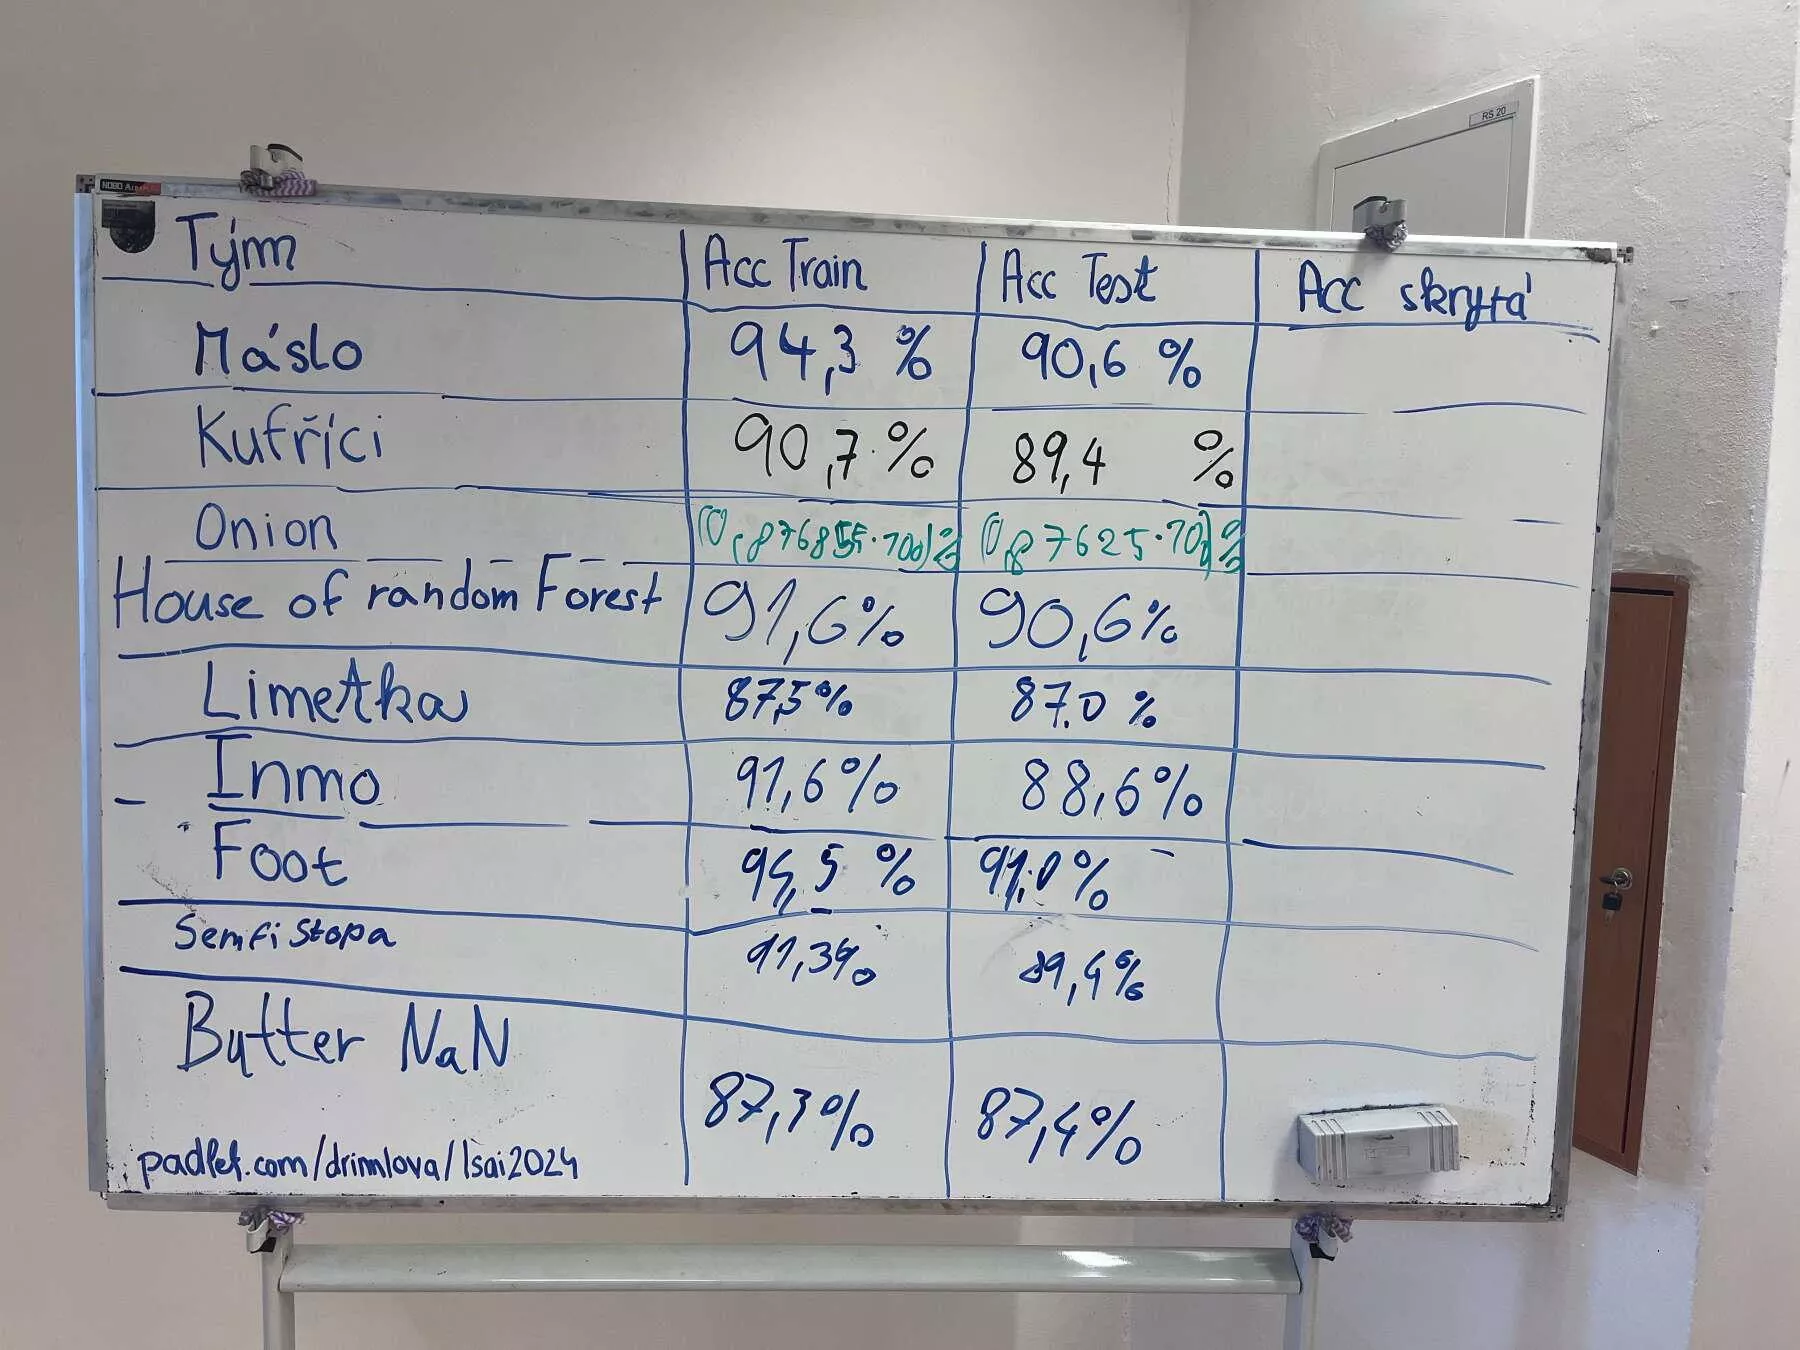 RS 20
NOBO
Tým Acc Train Acc Test Acc skrytá
Máslo 94,3 % 90,6 %
Kufříci 90,7 % 89,4 %
Onion (0,876855·100)% (0,87625·100)%
House of random Forest 91,6% 90,6%
Limetka 87,5% 87.0 %
Inmo 91,6% 88,6%
Foot 94,5 % 91,0%
Semfistopa 91,3% 89,4%
Butter NaN 87,3% 87,4%
padlet.com/drimlova/lsai2024